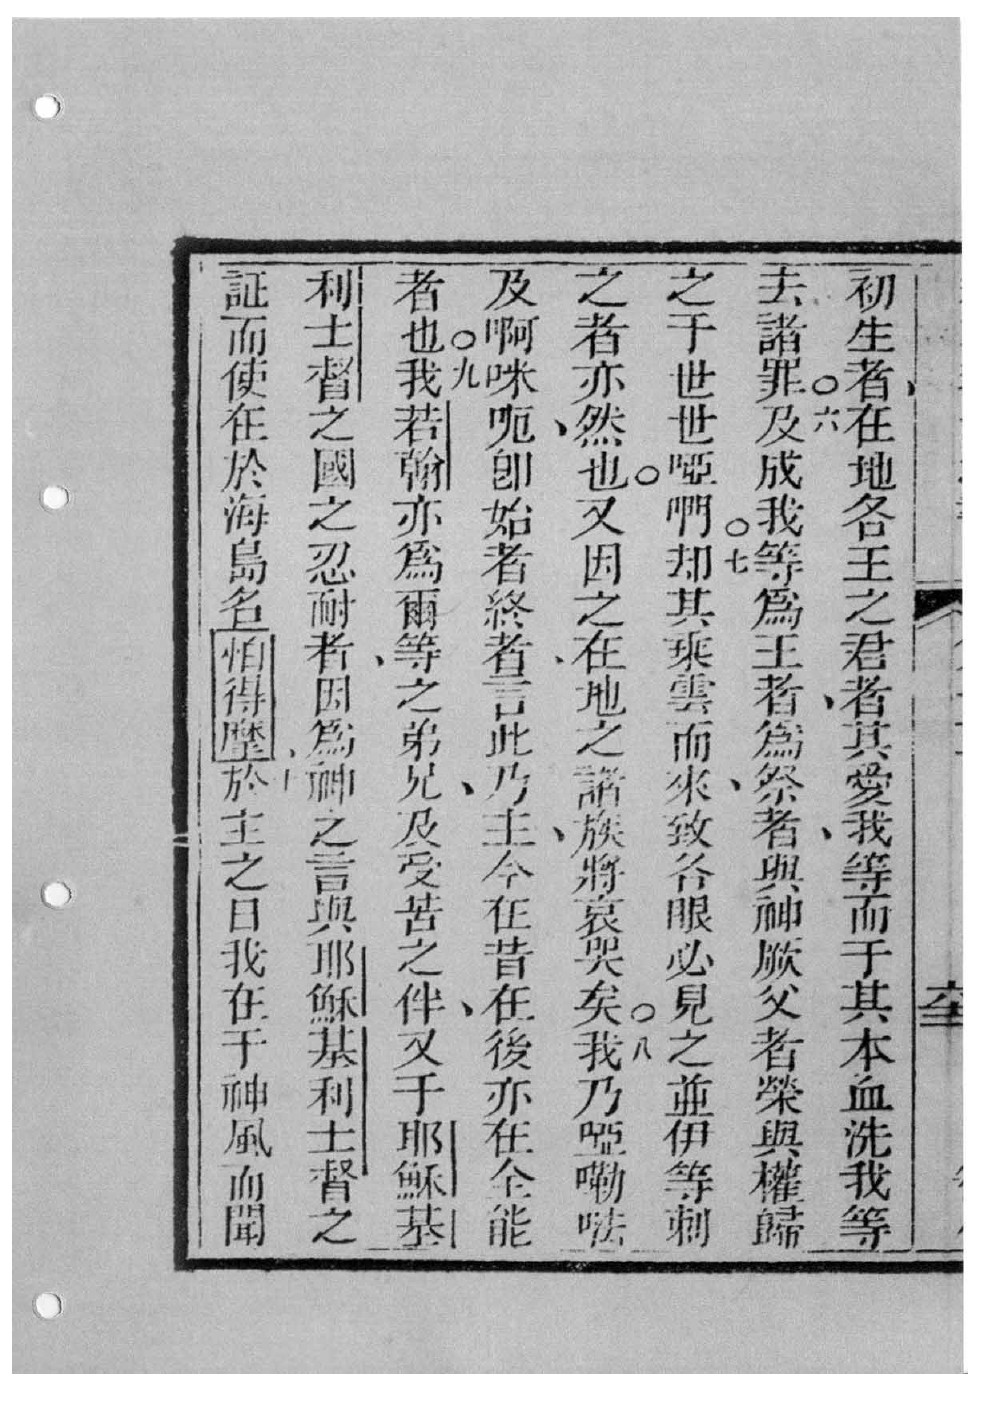 初生者在地各王之君者其愛我等而于其本血洗我等
去諸罪○六及成我等爲王者爲祭者與神厥父者榮與權歸
之于世世啞啊○七却其乘雲而來致各眼必見之並伊等刺
之者亦然也○又因之在地之諸族將哀哭矣○八我乃啞嘞㕵
及啊咪呃卽始者終者言此乃主今在昔在後亦在全能
者也○九我若翰亦爲爾等之弟兄及受苦之伴又于耶穌基
利士督之國之忍耐者因爲神之言與耶穌基利士督之
証而使在於海島名怕得壓於主之日我在于神風而聞